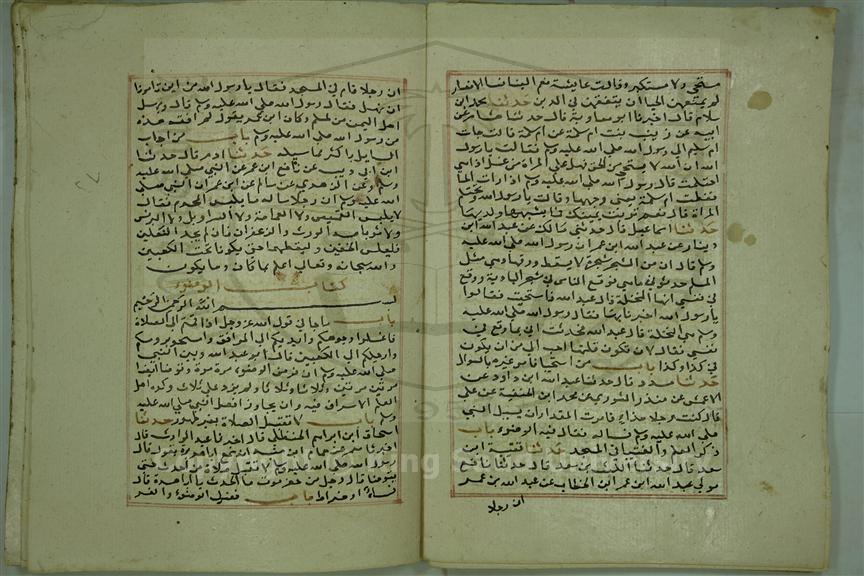 مستحي ولا مستكبر وقالت عائشة نعم النسا نسا الانصار
لم يمنعهن الحيا ان يتفقهن في الدين حدثنا محمد ابن
سلام قال اخبرنا ابو معاوية قال حدثنا هشام عن
ابيه عن زينب بنت ام سلمة عن ام سلمة قالت جات
ام سليم الى رسول الله صلى الله عليه وسلم فقالت يا رسول
الله ان الله لا يستحي من الحق فهل على المراة من غسل اذا هي
احتلمت قال رسول الله صلى الله عليه وسلم اذا رات الما
فغطت ام سلمة يعني وجهها وقالت يا رسول الله وتحتلم
المراة قال نعم تربت يمينك فبما يشبهها ولدها
حدثنا اسماعيل قال حدثني مالك عن عبد الله ابن
دينار عن عبد الله ابن عمر ان رسول الله صلى الله عليه
وسلم قال ان من الشجر شجرة لا يسقط ورقها وهي مثل
المسلم حدثوني ما هي فوقع الناس في شجر البادية ووقع
في نفسي انها النخلة قال عبد الله فاستحيت فقالوا
يا رسول الله اخبرنا بها فقال رسول الله صلى الله عليه
وسلم هي النخلة قال عبد الله فحدثت ابي بما وقع في
نفسي فقال لان تكون قلتها احب الي من ان يكون
لي كذا وكذا باب من استحيا فامر غيره بالسوال
حدثنا مسدد قال حدثنا عبد الله ابن داود عن
الاعمش عن منذر الثوري عن محمد ابن الحنفية عن علي
قال كنت رجلا مذاء فامرت المقداد ان يسيل النبي
صلى الله عليه وسلم فساله فقال فيه الوضوء باب
ذكر العلم والفتيا في المسجد حدثنا قتيبة ابن
سعد قال حدثنا الليث بن سعد قال حدثنا نافع
مولى عبد الله ابن عمر ابن الخطاب عن عبد الله بن عمر
ان رجلا
ان رجلا قام في المسجد فقال يا رسول الله من اين تامرنا
ان نهل فقال رسول الله صلى الله عليه وسلم
اهل اليمن من يلملم وكان ابن عمر يقول لم افقه هذه
من رسول الله صلى الله عليه وسلم باب من اجاب
السايل باكثر مما سيله حدثنا ادم قال حدثنا
ابن ابي ذيب عن نافع عن ابن عمر عن النبي صلى الله عليه
وسلم وعن الزهري عن سالم عن ابن عمر ان النبي صلى
الله عليه وسلم ان رجلا ساله ما يلبس المحرم فقال
لا يلبس القميص ولا العمامة ولا السراويل ولا البرنس
ولا ثوبا مسه الورس والزعفران فان لم يجد النعلين
فليلبس الخفين وليقطعهما حتى يكونا تحت الكعبين
والله سبحانه وتعالى اعلم بما كان وما يكون
كتاب الوضوء
بسم الله الرحمن الرحيم
باب ما جا في قول الله عز وجل اذا قمتم الى الصلاة
فاغسلوا وجوهكم وايديكم الى المرافق وامسحوا بروسكم
وارجلكم الى الكعبين قال ابو عبد الله وبين النبي
صلى الله عليه وسلم ان فرض الوضوء مرة مرة وتوضا ايضا
مرتين مرتين وثلاثا وثلاثا ولم يزد على ثلاث وكره اهل
العلم الاسراف فيه وان يجاوز افعل النبي صلى الله عليه
وسلم باب لا تقبل الصلاة بغير طهور حدثنا
اسحاق ابن ابراهيم الحنظلي قال اخبرنا عبد الرزاق قال
اخبرنا معمر عن همام ابن منبه انه سمع ابا هريرة يقول قال
رسول الله صلى الله عليه وسلم لا تقبل صلاة من احدث حتى
يتوضا قال رجل من حضرموت ما الحدث يا ابا هريرة قال
فساء او ضراط باب فضل الوضوء والغر